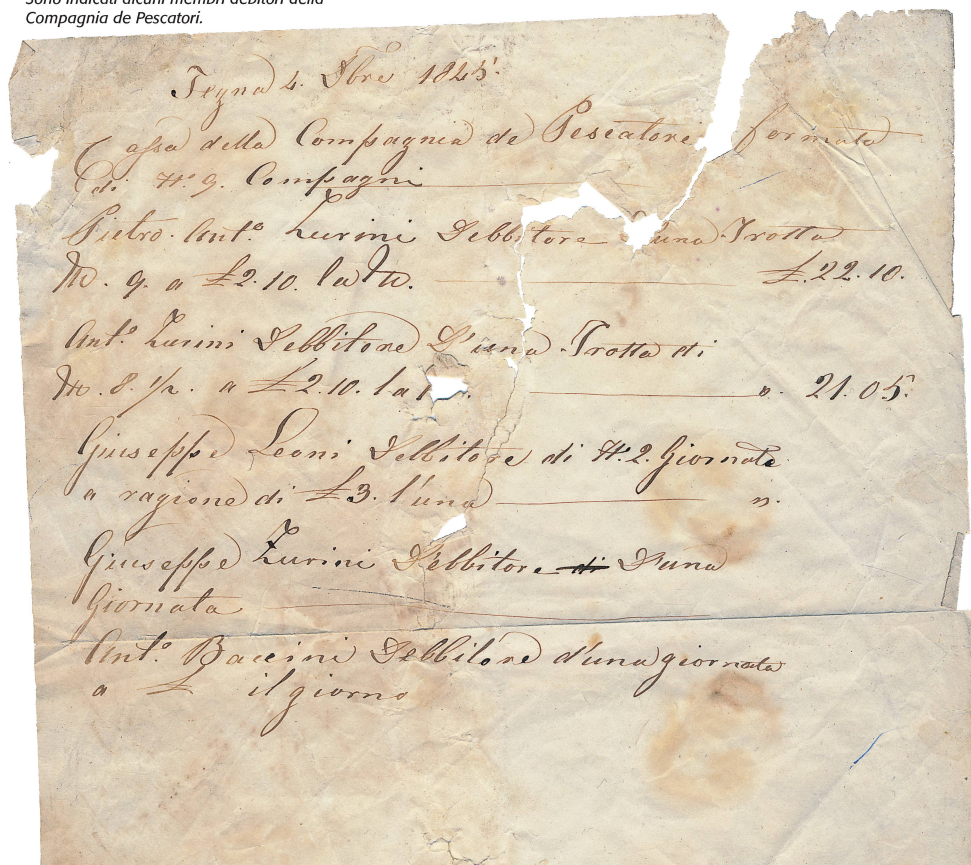 Sono indicati alcuni membri debitori della
Compagnia de Pescatori.
Tegna 4. Xbre 1845.
Cassa della Compagnia de Pescatore formata
di N.° 9. Compagni
Pietro Ant.° Zurini Debbitore d'una Trotta
lb. 9. a £2.10. la lb. £.22.10.
Ant.° Zurini Debbitore D'una Trotta di
lb. 8. 1/2. a £2.10. la ". 21.05.
Giuseppe Leoni Debbitore di N.°2. Giornate
a ragione di £3. l'una ".
Giuseppe Zurini Debbitore di D'una
Giornata
Ant.° Baccini Debbitore d'una giornata
a £ il giorno